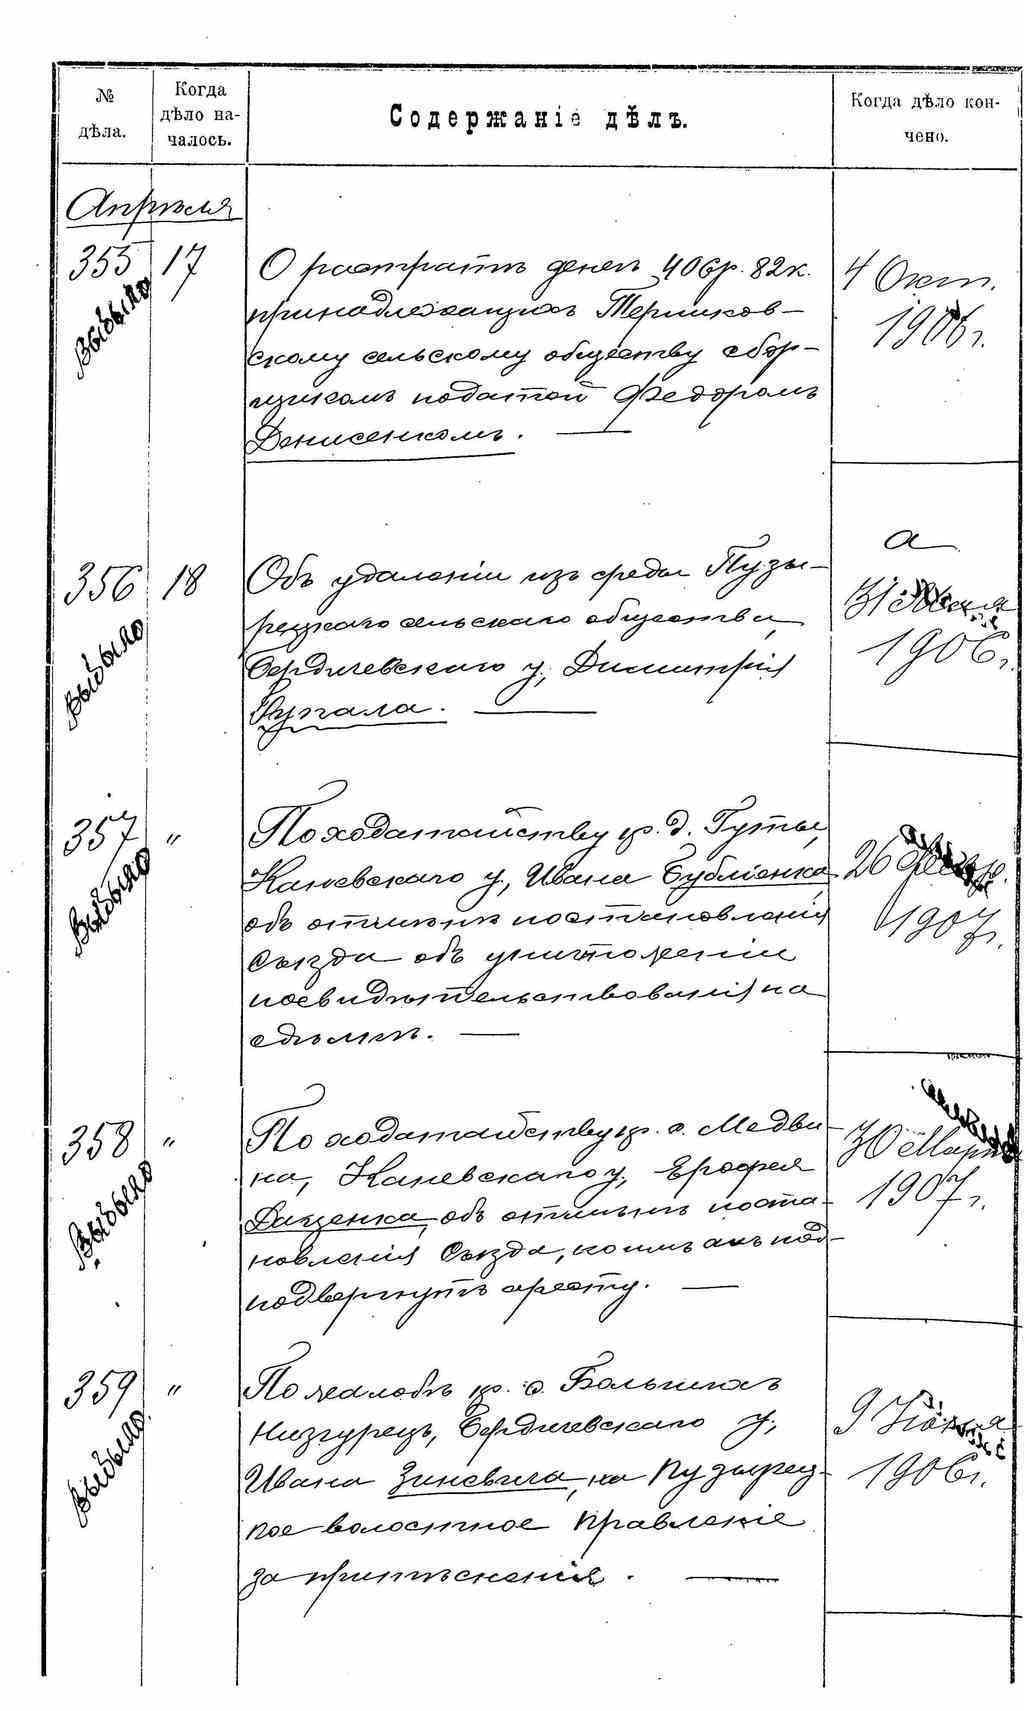 № дѣла.
Когда дѣло началось.
Содержаніе дѣлъ.
Когда дѣло кончено.
Апрѣля
355 17 О растратѣ денегъ 406р. 82к.
принадлежащихъ Термиков-
скому сельскому обществу сбор-
щикомъ податей Федоромъ
Денисенкомъ. —
4 Окт.
1906 г.
Выбыло
356 18 Объ удаленіи изъ среды Пузы-
рецкаго сельскаго общества,
Бердичевскаго у., Димитрія
Купала. —
31 Мая
1906 г.
Выбыло
357 " По ходатайству кр. д. Гуты,
Каневскаго у., Ивана Бубліенка
объ отмѣнѣ постановленія
Съѣзда объ уничтоженіи
посвидѣтельствованія на
сдѣлкѣ. —
26 Февр.
1907 г.
Выбыло
358 " По ходатайству кр. с. Медви-
на, Каневскаго у., Ерофея
объ отмѣнѣ поста-
новленія Съѣзда, коимъ онъ под-
подвергнутъ аресту. —
30 Марта
1907 г.
Выбыло
359 " По жалобѣ кр. с. Большихъ
Низгурецъ, Бердичевскаго у.,
Ивана Зиневича, на Пузырец-
кое волостное Правленіе
за притѣсненія. —
9 Іюня
1906 г.
Выбыло